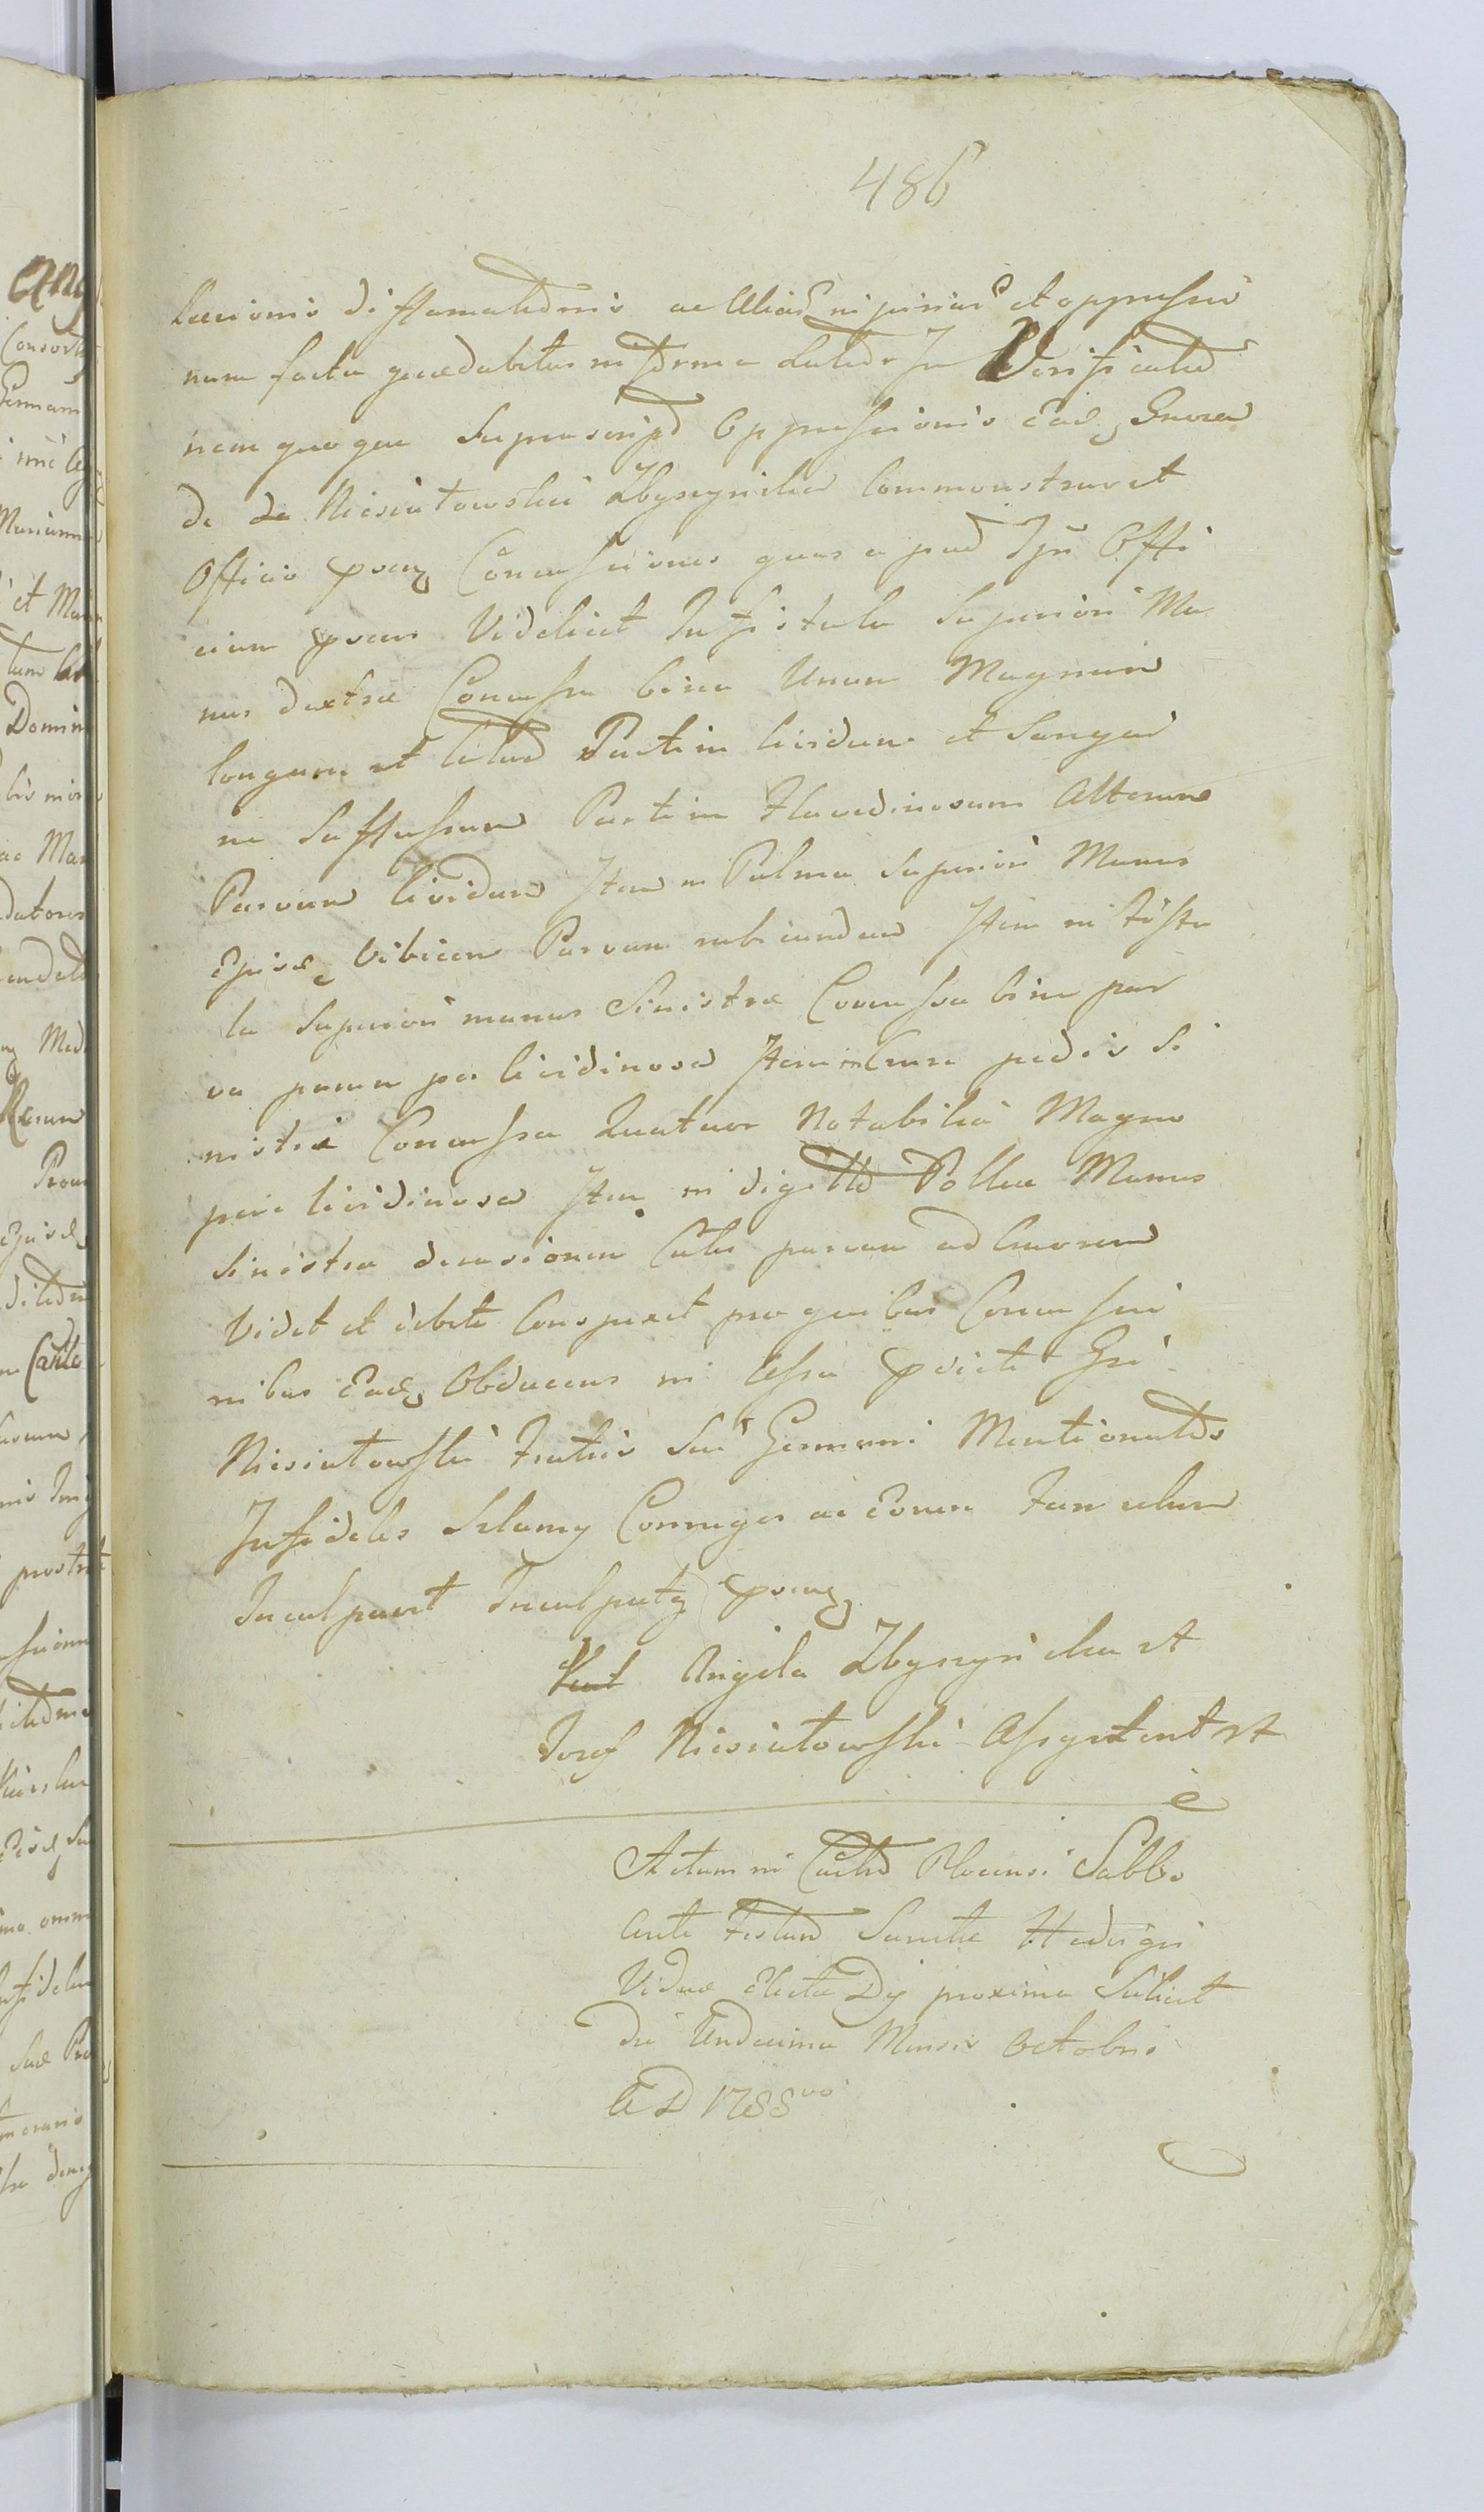 486
diffamationis ac aliar injuriar et oppressio
num facta quaedabitur in forma Lator In Verificatio
nem quoque Suprascript Oppressionis Ead Generosa
de de Niesiutowskie Zbyszyńska Commonstravit
Officio pseng Concussiones quas apud Ipm Offi
cium psens Videlicet In fistula Superiori Ma
nus dextrae Concussa bina Unum Magnum
longum et latum Partim lividum et Sangvi
ne Suffussum Partim Flavedinosum Alterum
Parvum lividum Item in Palma Superiori Manus
Ejusd Vibicem Parvam rubicundam Item in Fistu
la Superiori manus Sinistrae Concussa bina par
va livid inosa Item in Crure pedis Si
nistri Concussa Quatuor Notabilia Magno
pere lividinosa Item in digitto Pollice Manus
Sinistra derasionem Cutis parvam ad Cruorem
Vidit et debite Conspexit pro quibus Concussio
nibus Ead Obducens in assa pdicti Gsi
Niesiutowski Fratris Sui Germani Mentionatos
Infideles Szlamy Conjuges ac Eorum Famulum
Inculpavit Inculpatq pseng
Angela Zbyszyńska et
Josef Niesiutowski Assystent et
Actum in Castro Plocensi Sabbo
ante Festum Sanctae Hedvigis
Viduae Electae Dej proximo Scilicet
die Undecima Mensis Octobris
A D 1788vo